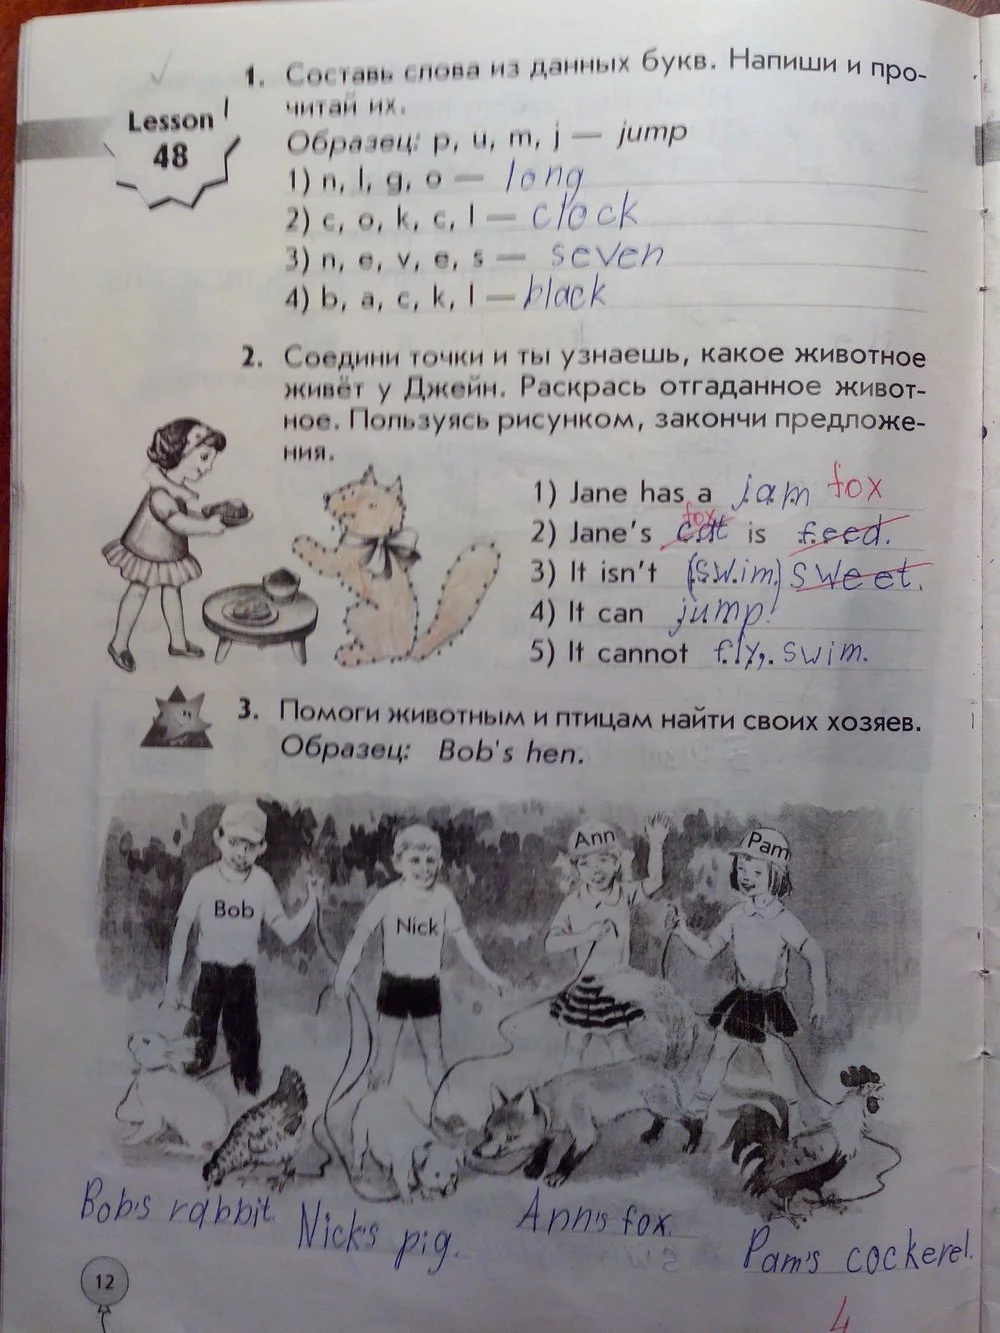 1. Составь слова из данных букв. Напиши и про-
читай их.
Lesson
48
Образец: p, u, m, j — jump
1) n, l, g, o — long
2) c, o, k, c, l — clock
3) n, e, v, e, s — seven
4) b, a, c, k, l — black
2. Соедини точки и ты узнаешь, какое животное
живёт у Джейн. Раскрась отгаданное живот-
ное. Пользуясь рисунком, закончи предложе-
ния.
1) Jane has a jam fox
fox
2) Jane's cat is feed.
3) It isn't (swim.) sweet.
4) It can jump.
5) It cannot fly, swim.
3. Помоги животным и птицам найти своих хозяев.
Образец: Bob's hen.
Bob
Nick
Ann
Pam
Bob's rabbit.
Nick's pig.
Ann's fox.
Pam's cockerel.
12
4